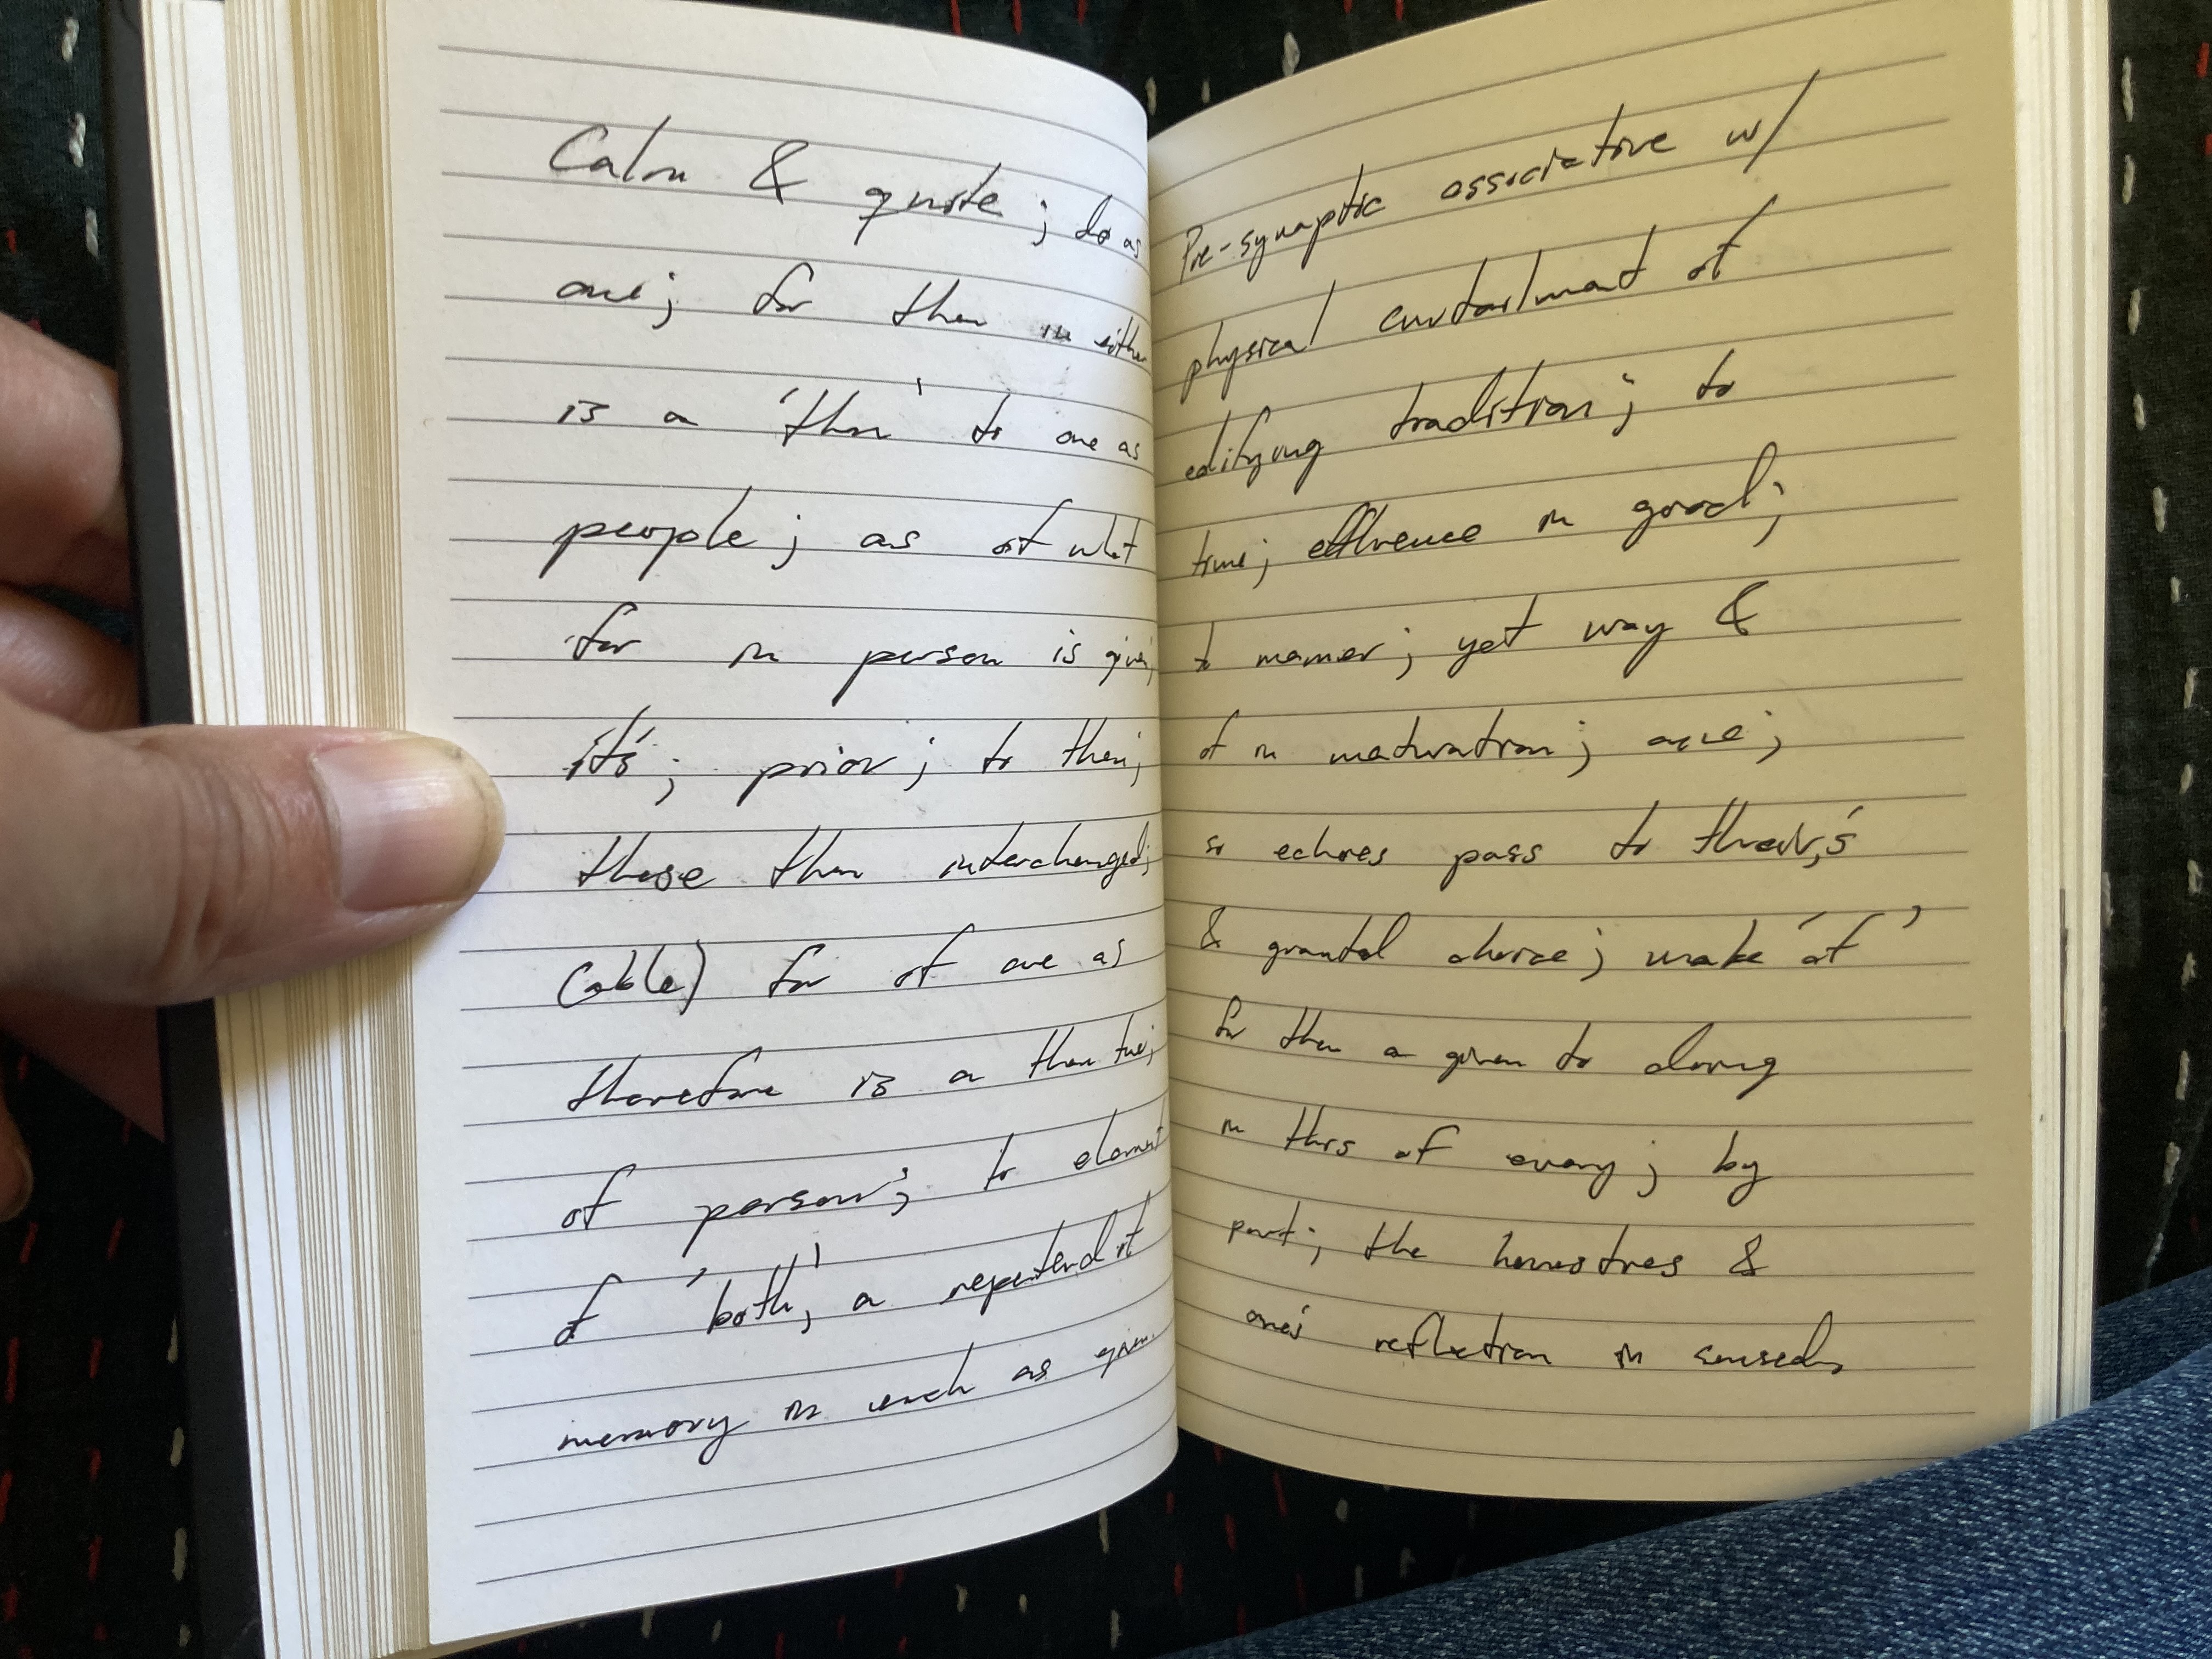 Calm & quote; do as
one; for then in either
is a 'then' to one as
people; as of what
for in person is given;
it's; prior; to then;
these then interchanged;
(able) for of one as
therefore is a then
of person; to element
of 'both', a repeated it
memory in each as given.
Pre-synaptic associative w/
physical curtailment of
edifying tradition; to
time; effluence in good;
to manner; yet way &
of in maturation; one;
so echoes pass to
& granted choice; make 'of'
for then a given to doing
in this of every; by
part; the &
one's reflection in